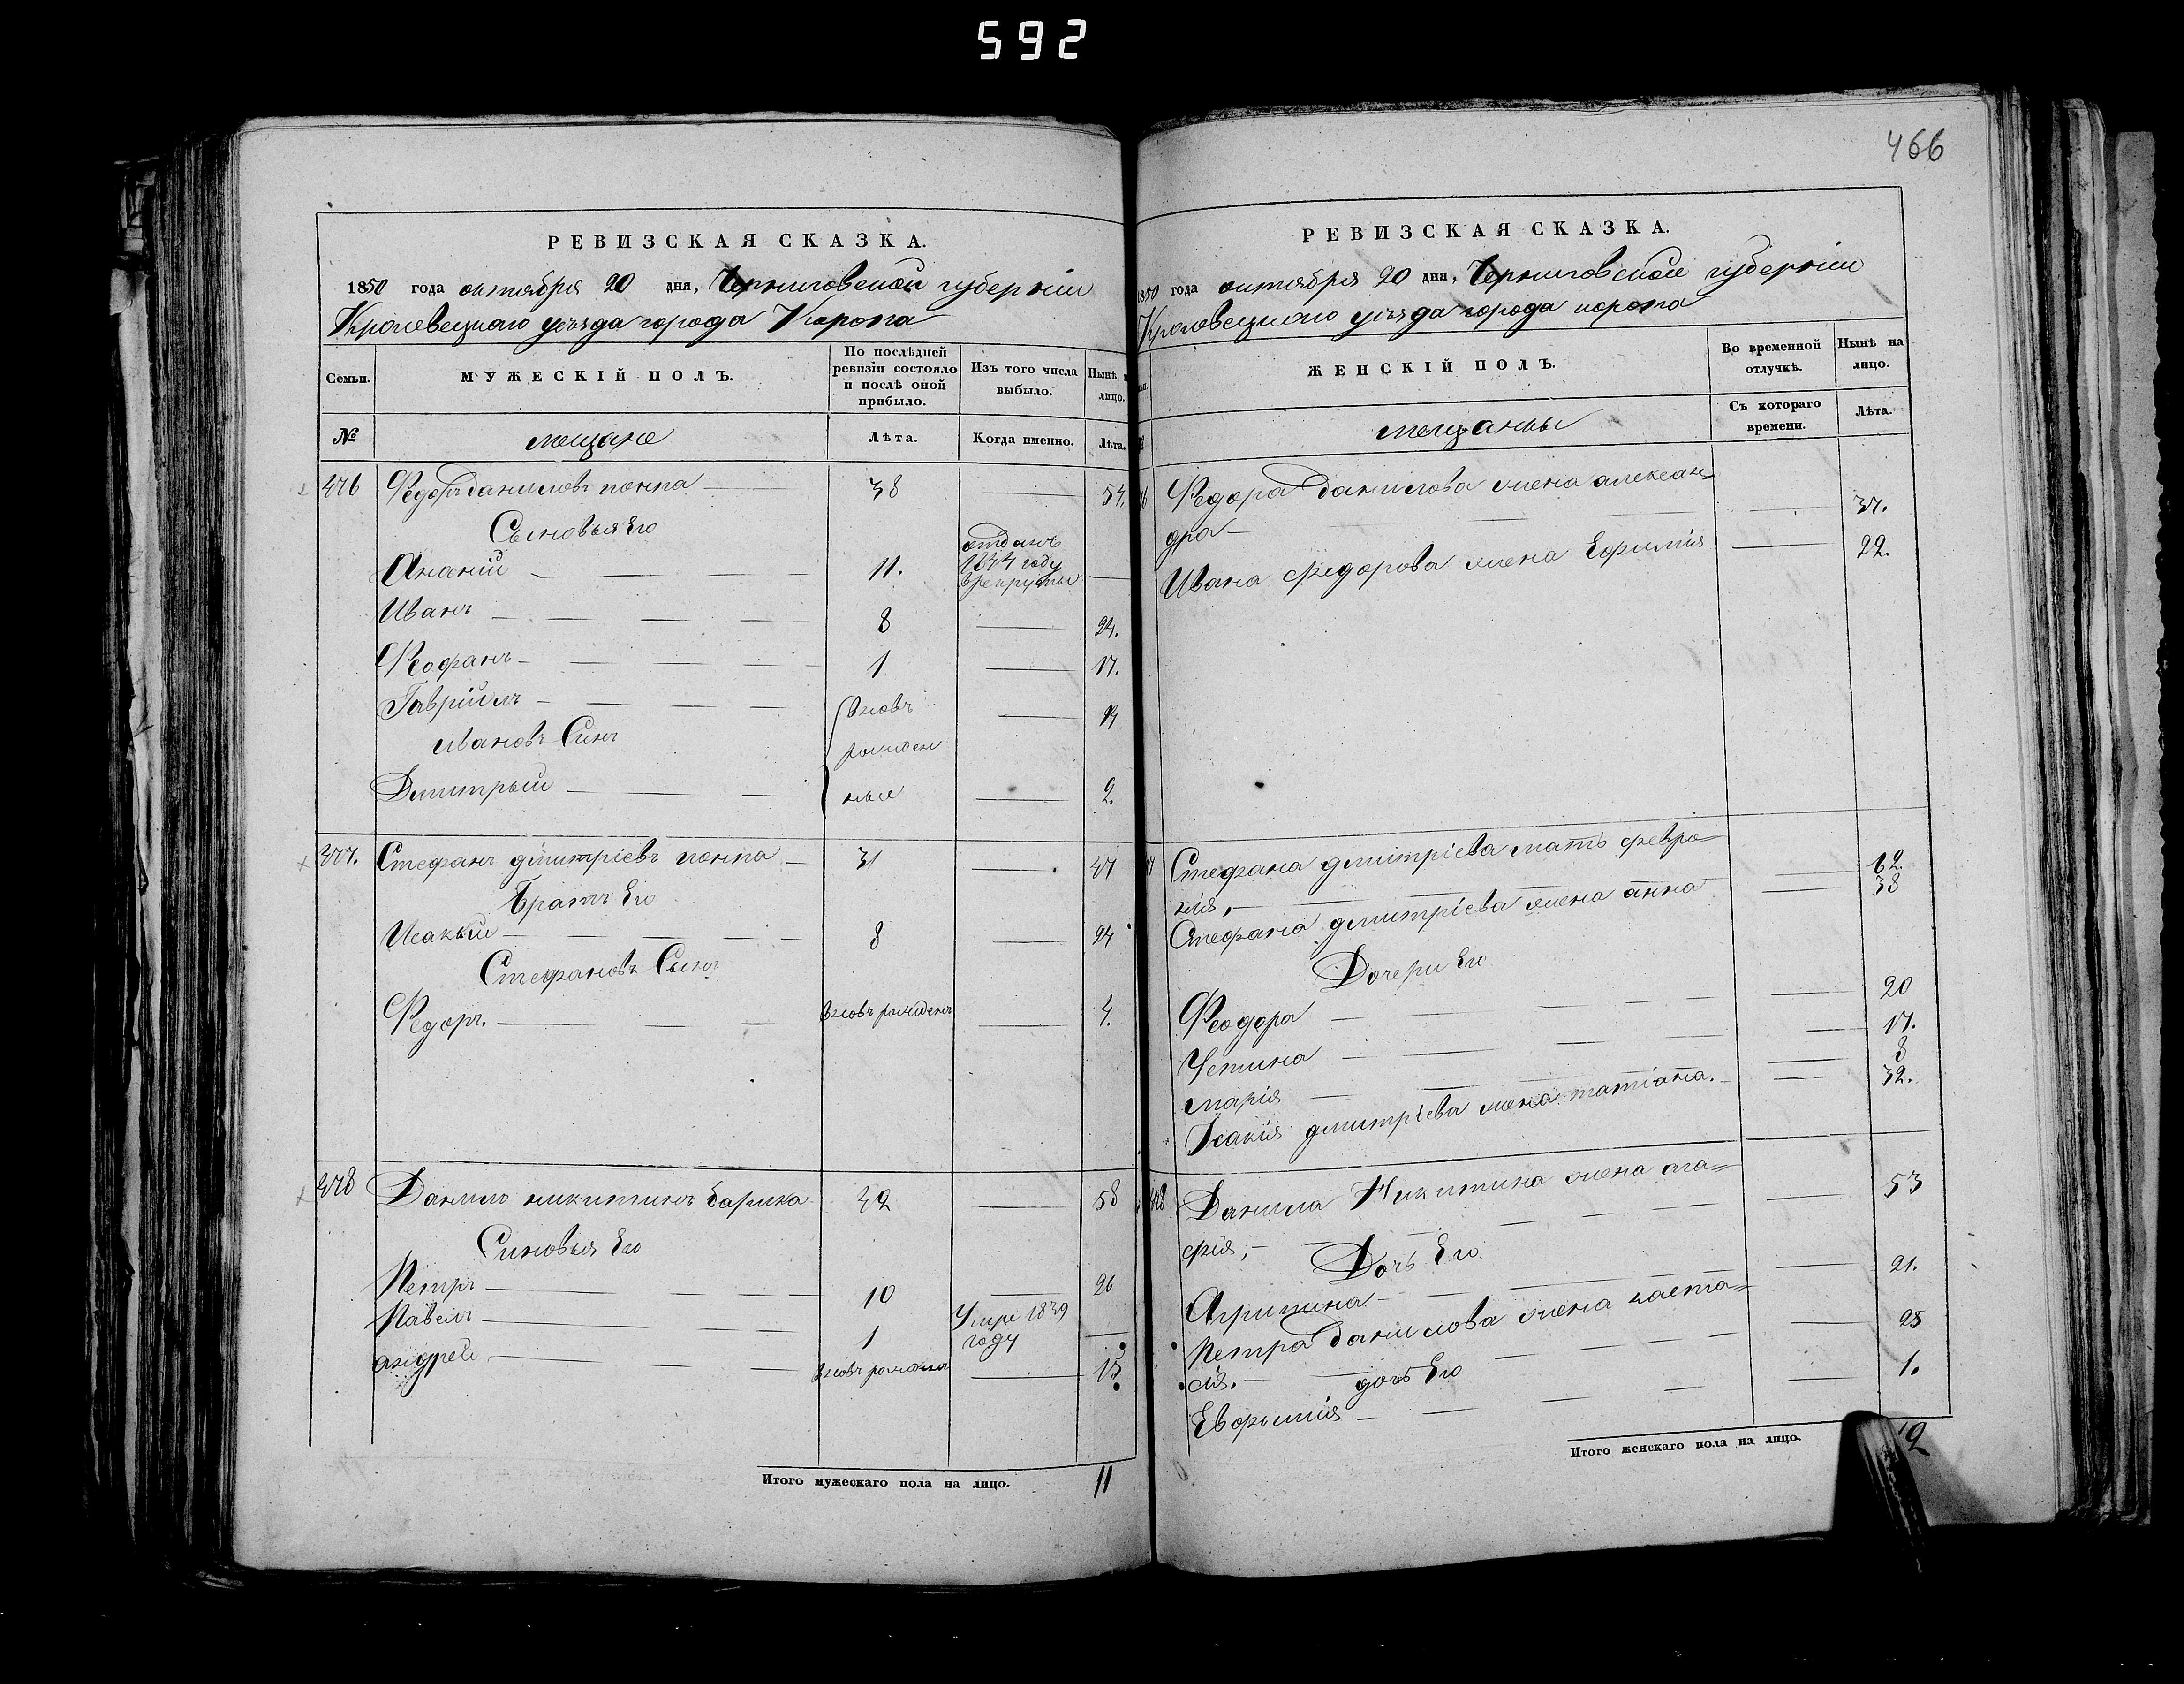 592
466
РЕВИЗСКАЯ СКАЗКА.
1850 года октября 20 дня, Черниговской губернии
Кролевецкаго уезда города Коропа
Семьи.
МУЖЕСКІЙ ПОЛЪ.
По послѣдней ревизіи состояло и послѣ оной прибыло.
Изъ того числа выбыло.
Нынѣ на лицо.
№
мещане
Лѣта.
Когда именно.
Лѣта.
476 Федоръ даниловъ попка 38 54.
Сыновья Его
Ананій 11. отданъ 1844 году в рекруты
Иванъ 8 24.
Феофанъ 1 17.
Гавріилъ вновь 14
ивановъ Синъ рожден
Дмитрый ные 2.
477. Стефанъ дмитріевъ попка 31 47
Братъ Его
Исакый 8 24
Стефановъ Сынъ
Федоръ. вновь рожденъ 4.
478 Данило никитинъ 42 58
Синовья Его
Петръ 10 26
Павелъ 1 Умре 1839 году
андрей вновь рожденъ 15
Итого мужескаго пола на лицо. 11
РЕВИЗСКАЯ СКАЗКА.
1850 года октября 20 дня, Черниговской губерніи
Кролевецкаго уезда города коропа
ЖЕНСКІЙ ПОЛЪ.
Во временной отлучкѣ.
Нынѣ на лицо.
мещанки
Съ котораго времени.
Лѣта.
Федора данилова жена алексан-
дра 37.
Ивана федорова жена Ефимия 22.
Стефана дмитріева мать февро-
нія, 62.
Стефана дмитріева жена анна 38
Дочери Его
Феодора 20
Устина 17.
марія 8
Исакия дмитріева жена татіана. 32.
478 Данила Никитина жена ага=
фія, 53
Дочь Его
Агрипина 21.
Петра данилова жена наста=
сія. 25
дочь Его
Евфимія 1.
Итого женскаго пола на лицо. 12